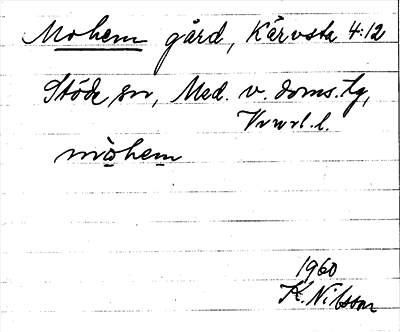 Mohem gård, Kärvsta 4:12
Stöde sn, Med. v. doms. tg,
mòhem
1960
K. Nilsson